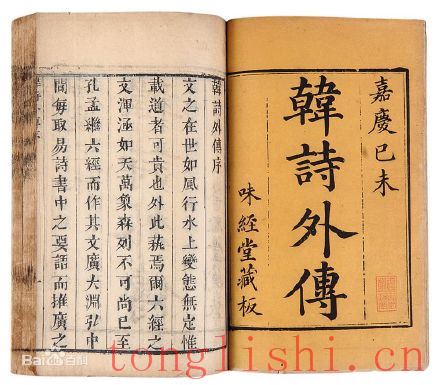 嘉慶己未
韓詩外傳
味經堂藏板
韓詩外傳序
文之在世如風行水上變態無定惟
載道者可貴也外此蔑焉爾六經之
文渾涵如天萬象森列不可尚已至
孔孟繼六經而作其文廣大淵弘中
間每取易詩書中之要語而推廣之
Bai百科
tonglishi.cn